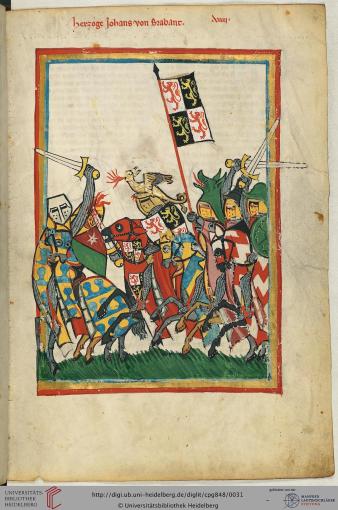 herzoge Johans von Brabant. xviij.
UNIVERSITÄTS-
BIBLIOTHEK
HEIDELBERG
http://digi.ub.uni-heidelberg.de/diglit/cpg848/0031
© Universitätsbibliothek Heidelberg
gefördert von der
MANFRED
LAUTENSCHLÄGER
STIFTUNG